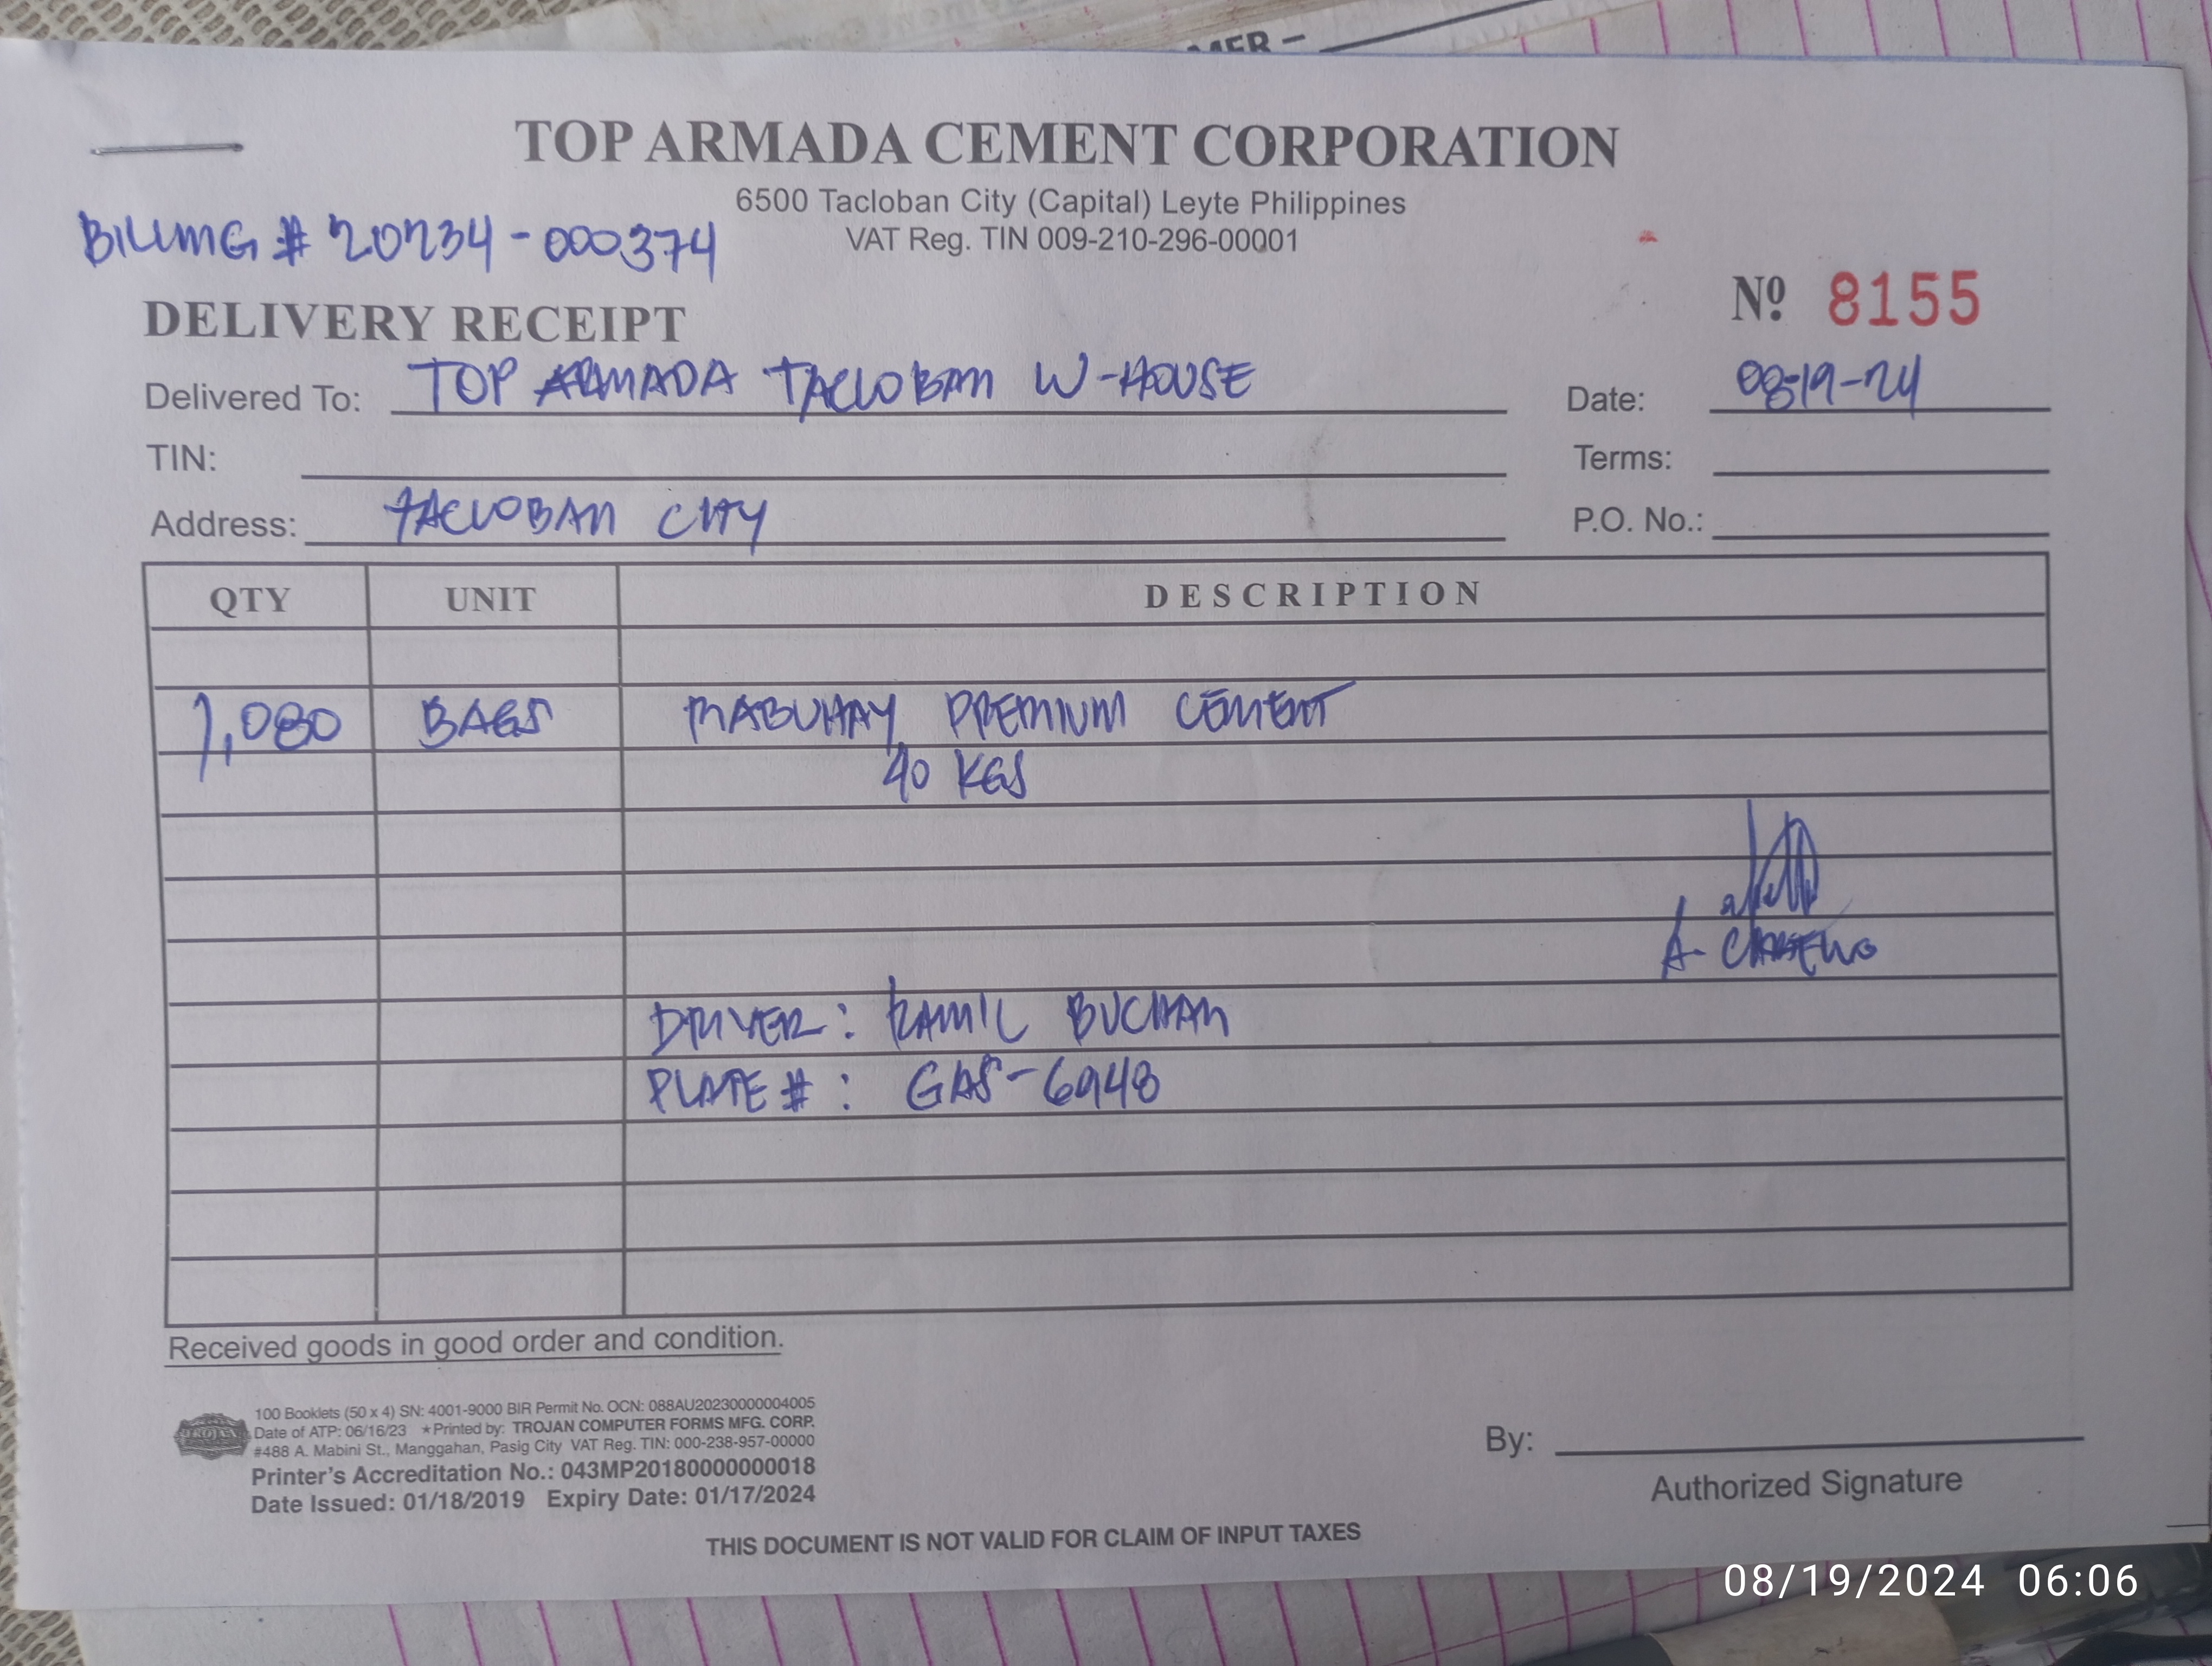 MER -
TOP ARMADA CEMENT CORPORATION
6500 Tacloban City (Capital) Leyte Philippines
VAT Reg. TIN 009-210-296-00001
BILLING # 20234-000374
DELIVERY RECEIPT
Nº 8155
Delivered To: TOP ARMADA TACLOBAN W-HOUSE
Date: 08-19-24
TIN:
Terms:
Address: TACLOBAN CITY
P.O. No.:
QTY UNIT DESCRIPTION
1,080 BAGS MABUHAY PREMIUM CEMENT
40 KGS
A.
DRIVER: RAMIL BUCHAN
PLATE #: GAS-6948
Received goods in good order and condition.
TROJAN
100 Booklets (50 x 4) SN: 4001-9000 BIR Permit No. OCN: 088AU20230000004005
Date of ATP: 06/16/23 ★Printed by: TROJAN COMPUTER FORMS MFG. CORP.
#488 A. Mabini St., Manggahan, Pasig City VAT Reg. TIN: 000-238-957-00000
Printer's Accreditation No.: 043MP20180000000018
Date Issued: 01/18/2019 Expiry Date: 01/17/2024
By:
Authorized Signature
THIS DOCUMENT IS NOT VALID FOR CLAIM OF INPUT TAXES
08/19/2024 06:06